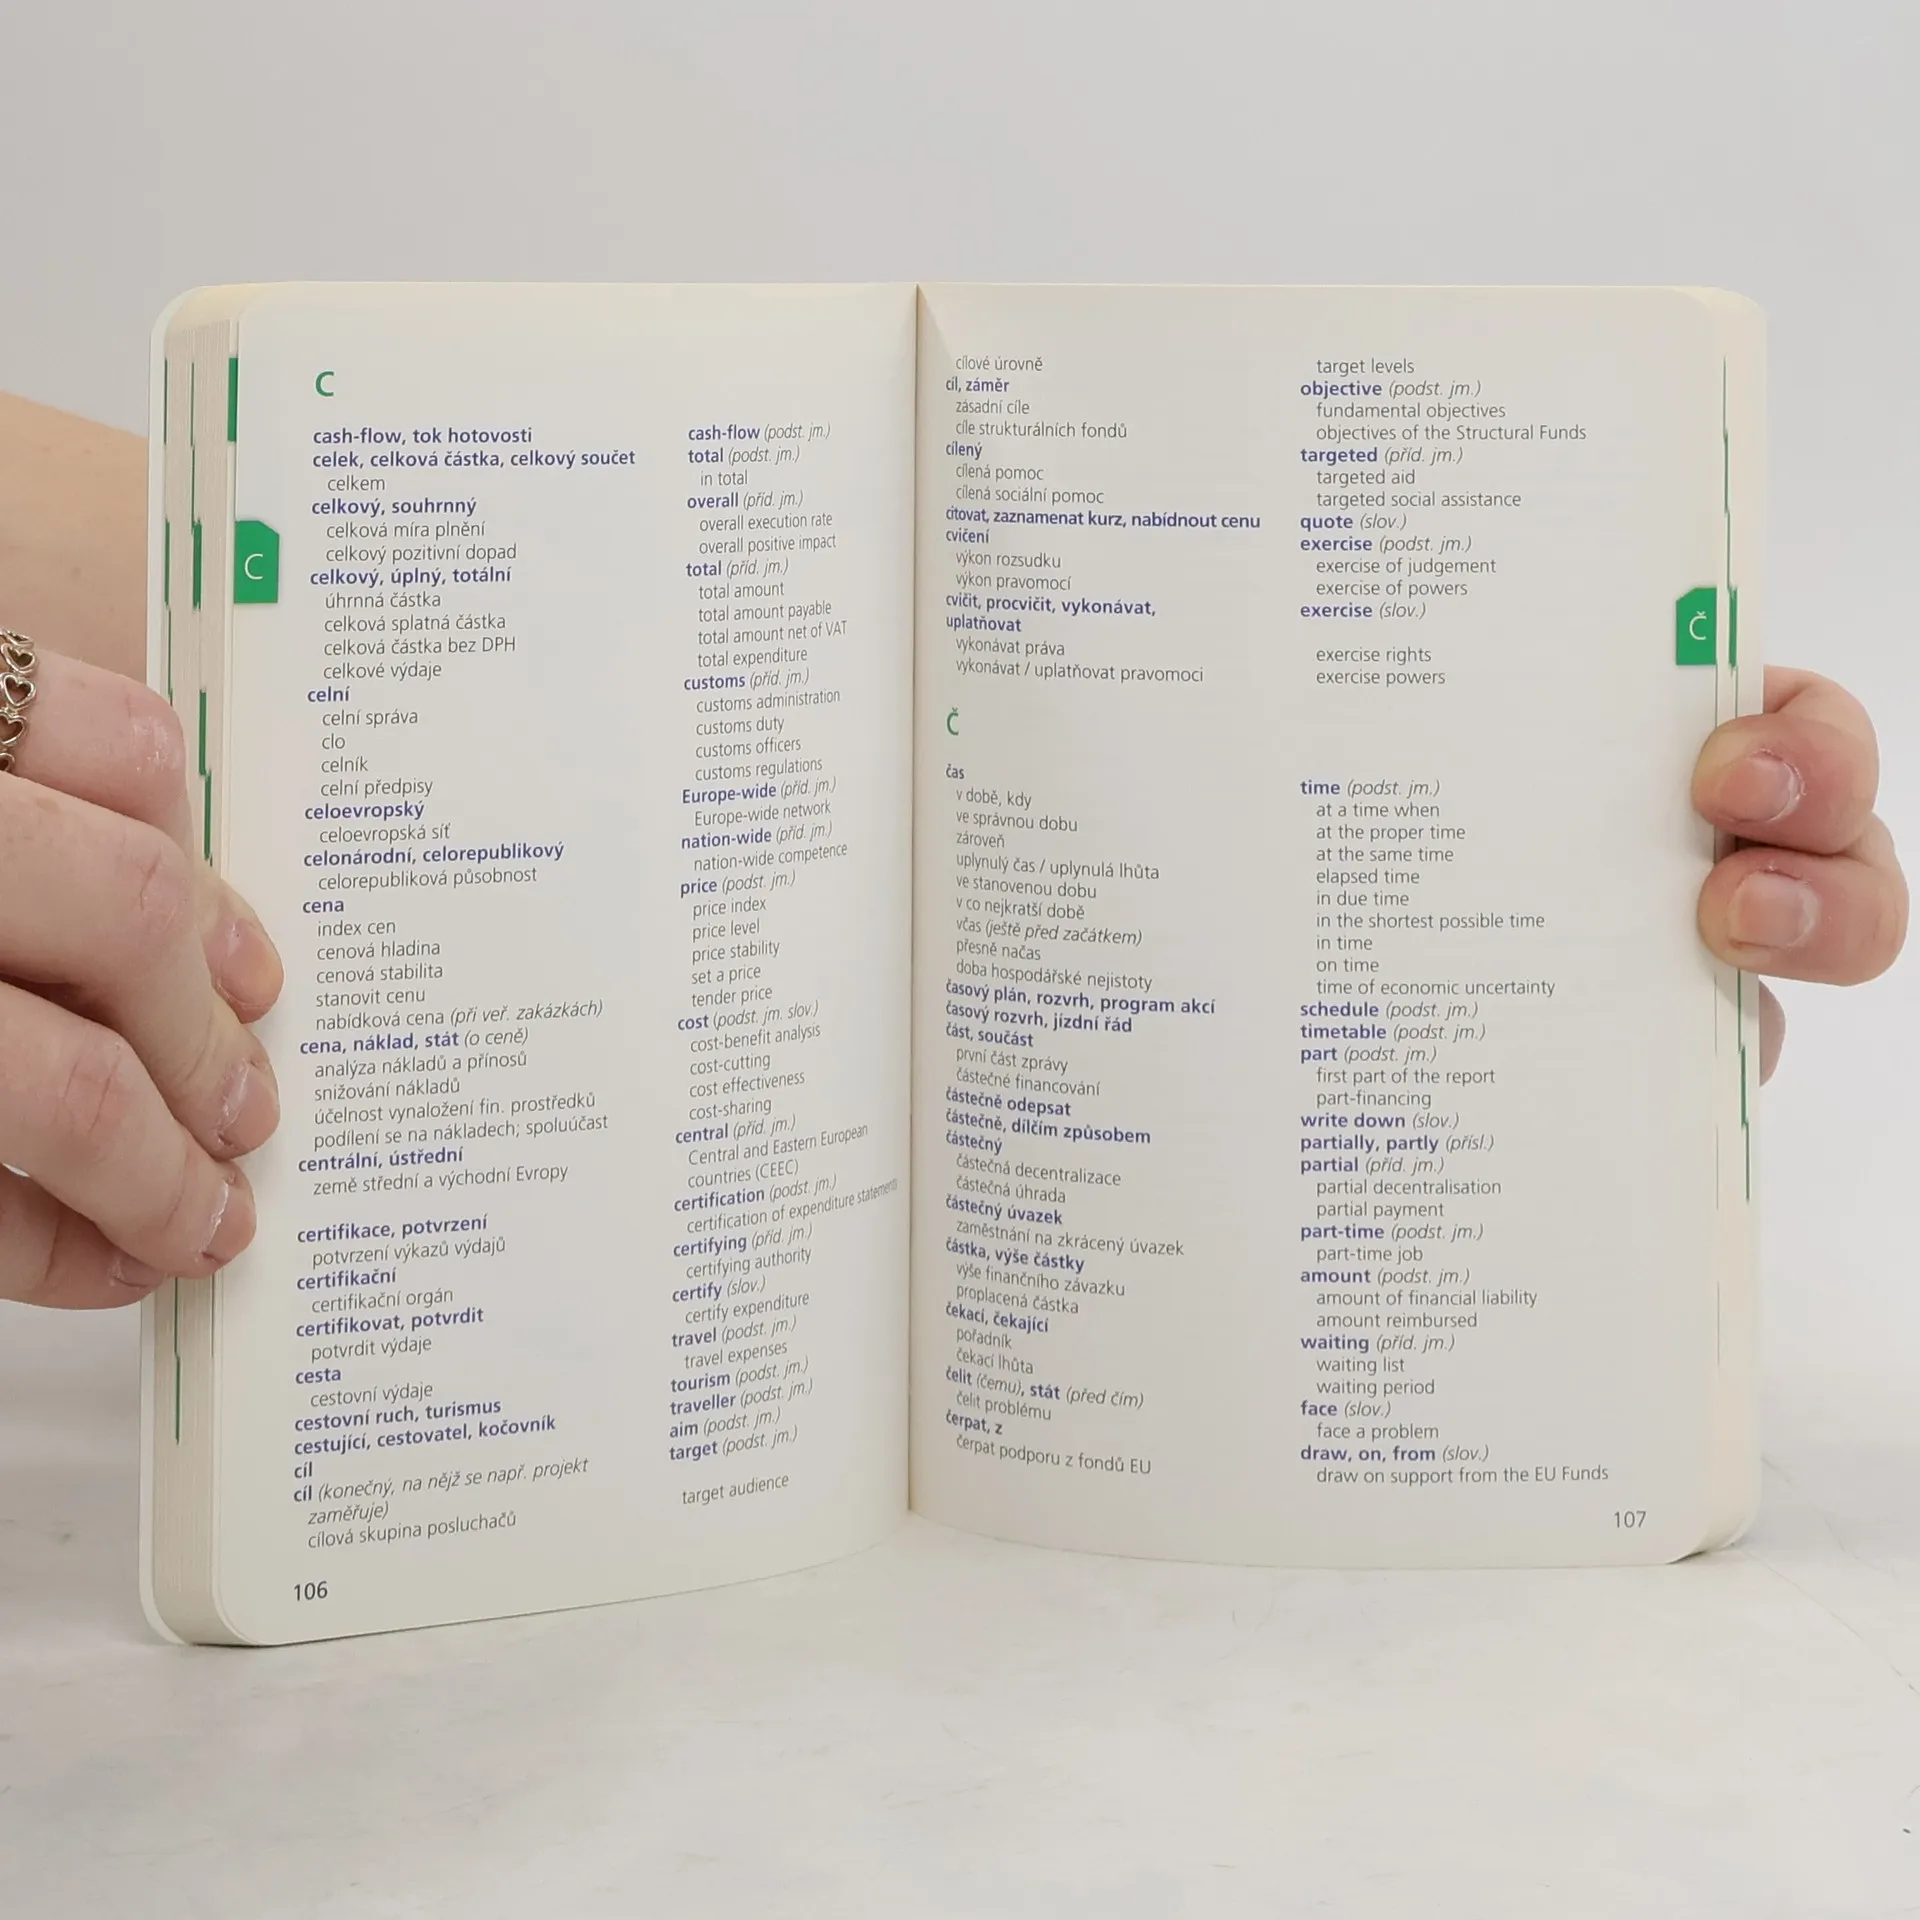 C
C
cash-flow, tok hotovosti
celek, celková částka, celkový součet
celkem
celkový, souhrnný
celková míra plnění
celkový pozitivní dopad
celkový, úplný, totální
úhrnná částka
celková splatná částka
celková částka bez DPH
celkové výdaje
celní
celní správa
clo
celník
celní předpisy
celoevropský
celoevropská síť
celonárodní, celorepublikový
celorepubliková působnost
cena
index cen
cenová hladina
cenová stabilita
stanovit cenu
nabídková cena (při veř. zakázkách)
cena, náklad, stát (o ceně)
analýza nákladů a přínosů
snižování nákladů
účelnost vynaložení fin. prostředků
podílení se na nákladech; spoluúčast
centrální, ústřední
země střední a východní Evropy
certifikace, potvrzení
potvrzení výkazů výdajů
certifikační
certifikační orgán
certifikovat, potvrdit
potvrdit výdaje
cesta
cestovní výdaje
cestovní ruch, turismus
cestující, cestovatel, kočovník
cíl
cíl (konečný, na nějž se např. projekt
zaměřuje)
cílová skupina posluchačů
cash-flow (podst. jm.)
total (podst. jm.)
in total
overall (příd. jm.)
overall execution rate
overall positive impact
total (příd. jm.)
total amount
total amount payable
total amount net of VAT
total expenditure
customs (příd. jm.)
customs administration
customs duty
customs officers
customs regulations
Europe-wide (příd. jm.)
Europe-wide network
nation-wide (příd. jm.)
nation-wide competence
price (podst. jm.)
price index
price level
price stability
set a price
tender price
cost (podst. jm. slov.)
cost-benefit analysis
cost-cutting
cost effectiveness
cost-sharing
central (příd. jm.)
Central and Eastern European
countries (CEEC)
certification (podst. jm.)
certification of expenditure statements
certifying (příd. jm.)
certifying authority
certify (slov.)
certify expenditure
travel (podst. jm.)
travel expenses
tourism (podst. jm.)
traveller (podst. jm.)
aim (podst. jm.)
target (podst. jm.)
target audience
106
cílové úrovně
cíl, záměr
zásadní cíle
cíle strukturálních fondů
cílený
cílená pomoc
cílená sociální pomoc
citovat, zaznamenat kurz, nabídnout cenu
cvičení
výkon rozsudku
výkon pravomocí
cvičit, procvičit, vykonávat,
uplatňovat
vykonávat práva
vykonávat / uplatňovat pravomoci
Č
čas
v době, kdy
ve správnou dobu
zároveň
uplynulý čas / uplynulá lhůta
ve stanovenou dobu
v co nejkratší době
včas (ještě před začátkem)
přesně načas
doba hospodářské nejistoty
časový plán, rozvrh, program akcí
časový rozvrh, jízdní řád
část, součást
první část zprávy
částečné financování
částečně odepsat
částečně, dílčím způsobem
částečný
částečná decentralizace
částečná úhrada
částečný úvazek
zaměstnání na zkrácený úvazek
částka, výše částky
výše finančního závazku
proplacená částka
čekací, čekající
pořadník
čekací lhůta
čelit (čemu), stát (před čím)
čelit problému
čerpat, z
čerpat podporu z fondů EU
target levels
objective (podst. jm.)
fundamental objectives
objectives of the Structural Funds
targeted (příd. jm.)
targeted aid
targeted social assistance
quote (slov.)
exercise (podst. jm.)
exercise of judgement
exercise of powers
exercise (slov.)
exercise rights
exercise powers
time (podst. jm.)
at a time when
at the proper time
at the same time
elapsed time
in due time
in the shortest possible time
in time
on time
time of economic uncertainty
schedule (podst. jm.)
timetable (podst. jm.)
part (podst. jm.)
first part of the report
part-financing
write down (slov.)
partially, partly (přísl.)
partial (příd. jm.)
partial decentralisation
partial payment
part-time (podst. jm.)
part-time job
amount (podst. jm.)
amount of financial liability
amount reimbursed
waiting (příd. jm.)
waiting list
waiting period
face (slov.)
face a problem
draw, on, from (slov.)
draw on support from the EU Funds
Č
107